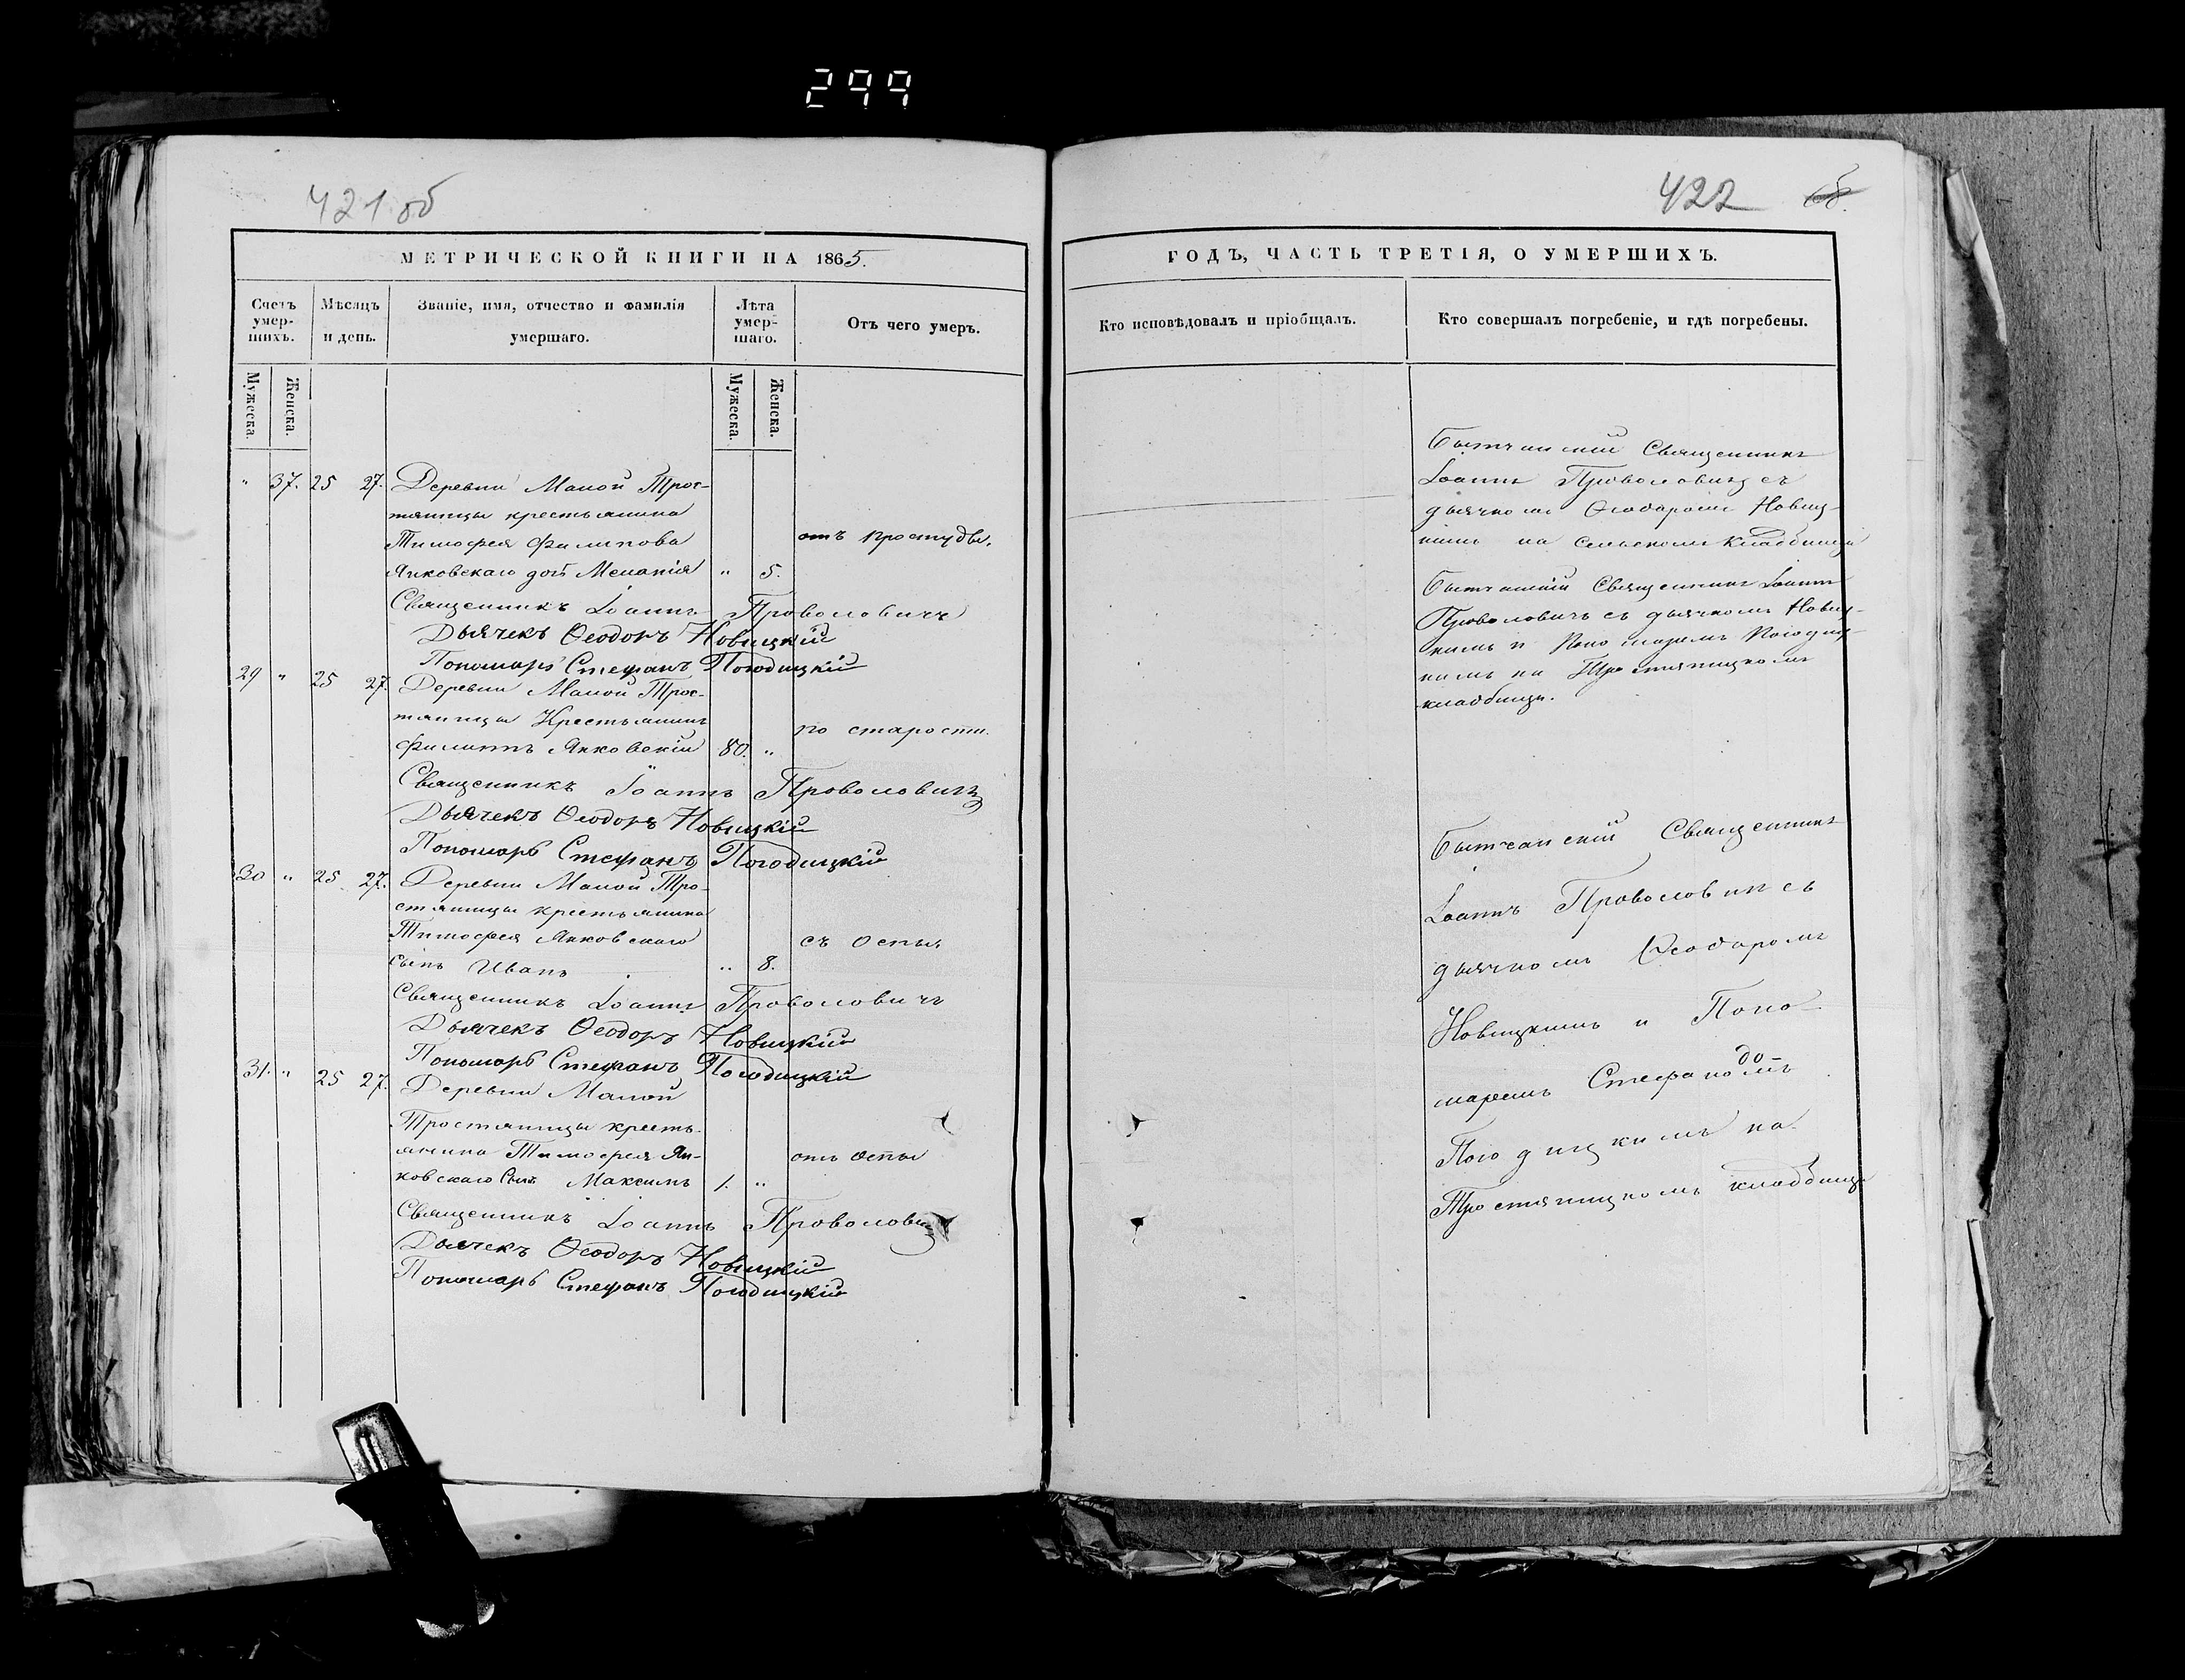 299
421 об
МЕТРИЧЕСКОЙ КНИГИ НА 1865.
Счетъ умер-шихъ.
Мѣсяцъ и день.
Званіе, имя, отчество и фамилія умершаго.
Лѣта умер-шаго.
Отъ чего умеръ.
Мужеска.
Женска.
Мужеска.
Женска.
" 37. 25 27. Деревни Малой Трос-
тяницы крестьянина
Тимофея Филипова отъ простуды.
Янковскаго дочь Меланія " 5.
Священникъ Іоаннъ Проволовичъ
Дьячекъ Ѳеодоръ Новицкій
Пономарь Стефанъ Погодицкій
29 " 25 27. Деревни Малой Трос-
тяницы Крестьянинъ
Филиппъ Янковскій 80. " по старости.
Священникъ Іоаннъ Проволовичъ
Дьячекъ Ѳеодоръ Новицкій
Пономарь Стефанъ Погодицкій
30 " 25 27. Деревни Малой Тро-
стяницы крестьянина
Тимофея Янковскаго съ оспы.
сынъ Иванъ " 8.
Священникъ Іоаннъ Проволовичъ
Дьячекъ Ѳеодоръ Новицкій
Пономарь Стефанъ Погодицкій
31. " 25 27. Деревни Малой
Тростяницы кресть-
янина Тимофея Ян- отъ оспы
ковскаго Сынъ Максимъ 1. "
Священникъ Іоаннъ Проволовичъ
Дьячекъ Ѳеодоръ Новицкій
Пономарь Стефанъ Погодицкій
422
ГОДЪ, ЧАСТЬ ТРЕТІЯ, О УМЕРШИХЪ.
Кто исповѣдовалъ и пріобщалъ.
Кто совершалъ погребеніе, и гдѣ погребены.
Бытчанскій Священникъ
Іоаннъ Проволовичъ съ
дьячкомъ Ѳеодоромъ Новиц-
кимъ на Сельскомъ Кладбищѣ
Бытчанскій Священникъ Іоаннъ
Проволовичъ съ дьячкомъ Новиц-
кимъ и Пономаремъ Погодиц-
кимъ на Тростяницкомъ
кладбищѣ.
Бытчанскій Священникъ
Іоаннъ Проволовичъ съ
дьячкомъ Ѳеодоромъ
Новицкимъ и Поно-
маремъ Стефаномъ
Погодицкимъ на
Тростяницкомъ кладбищѣ